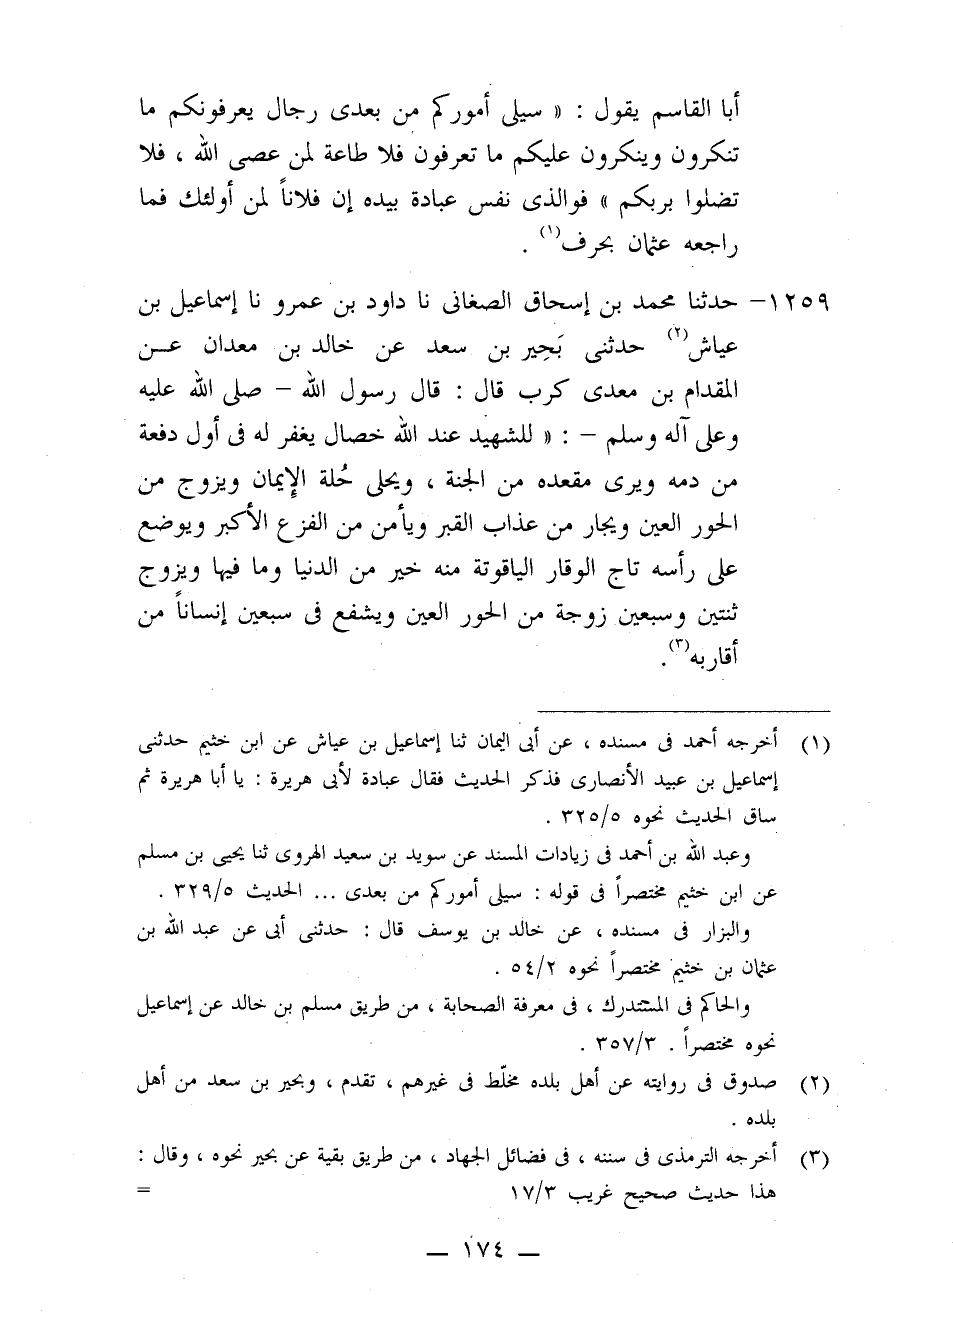 أبا القاسم يقول : « سيلى أموركم من بعدى رجال يعرفونكم ما
تنكرون وينكرون عليكم ما تعرفون فلا طاعة لمن عصى الله ، فلا
تضلوا بربكم » فوالذى نفس عبادة بيده إن فلاناً لمن أولئك فما
راجعه عثمان بحرف(١) .
١٢٥٩– حدثنا محمد بن إسحاق الصغانى نا داود بن عمرو نا إسماعيل بن
عياش(٢) حدثنى بَحِير بن سعد عن خالد بن معدان عــن
المقدام بن معدى كرب قال : قال رسول الله – صلى الله عليه
وعلى آله وسلم – : « للشهيد عند الله خصال يغفر له فى أول دفعة
من دمه ويرى مقعده من الجنة ، ويحلى حُلة الإيمان ويزوج من
الحور العين ويجار من عذاب القبر ويأمن من الفزع الأكبر ويوضع
على رأسه تاج الوقار الياقوتة منه خير من الدنيا وما فيها ويزوج
ثنتين وسبعين زوجة من الحور العين ويشفع فى سبعين إنساناً من
أقاربه(٣).
(١) أخرجه أحمد فى مسنده ، عن أبى اليمان ثنا إسماعيل بن عياش عن ابن خثيم حدثنى
إسماعيل بن عبيد الأنصارى فذكر الحديث فقال عبادة لأبى هريرة : يا أبا هريرة ثم
ساق الحديث نحوه ٣٢٥/٥ .
وعبد الله بن أحمد فى زيادات المسند عن سويد بن سعيد الهروى ثنا يحيى بن مسلم
عن ابن خثيم مختصراً فى قوله : سيلى أموركم من بعدى ... الحديث ٣٢٩/٥ .
والبزار فى مسنده ، عن خالد بن يوسف قال : حدثنى أبى عن عبد الله بن
عثمان بن خثيم مختصراً نحوه ٥٤/٢ .
والحاكم فى المستدرك ، فى معرفة الصحابة ، من طريق مسلم بن خالد عن إسماعيل
نحوه مختصراً . ٣٥٧/٣ .
(٢) صدوق فى روايته عن أهل بلده مخلّط فى غيرهم ، تقدم ، وبحير بن سعد من أهل
بلده .
(٣) أخرجه الترمذى فى سننه ، فى فضائل الجهاد ، من طريق بقية عن بحير نحوه ، وقال :
هذا حديث صحيح غريب ١٧/٣ =
— ١٧٤ —